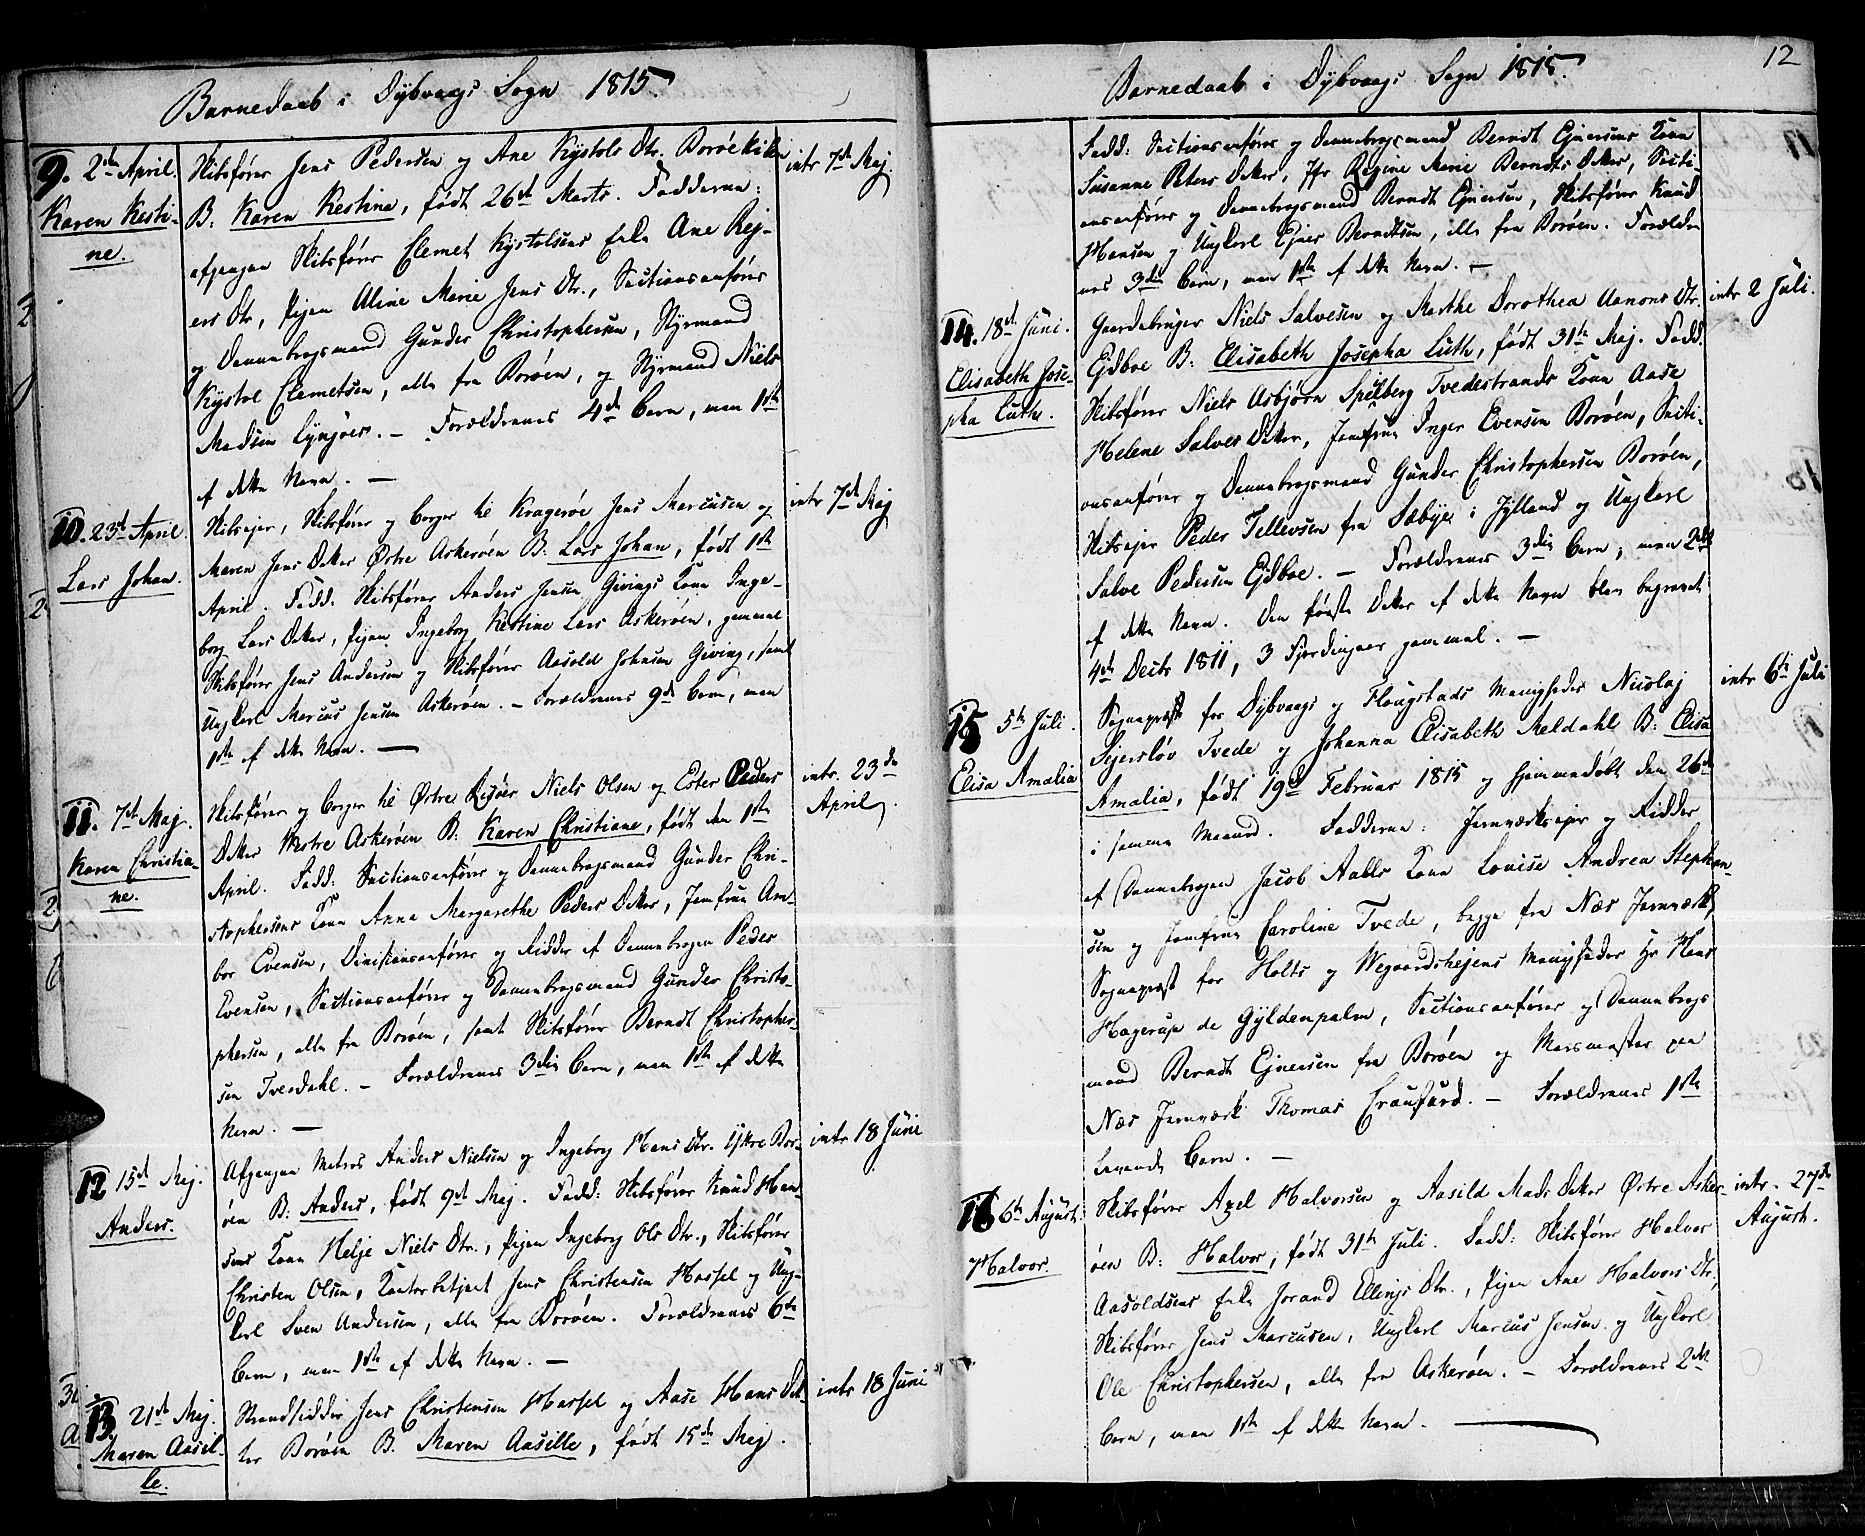 Barnedaab i Dybvaags Sogn 1815.
9. 2den April.
Karen Kesti-
ne.
Skibsfører Jens Pedersen og Ane Kystols Dtr. Borøekilen
B: Karen Kestine, født 26de Marts. Fadderne:
afgangne Skibsfører Clemet Kystolsens Enke Ane Rej-
ers Dtr, Pigen Aline Marie Jens Dtr., Sectionsanfører
og Dannebrogsmand Gunder Christophersen, Styrmand
Kystol Clemetsen, alle fra Borøen, og Styrmand Niels
Madsen Lyngøer. — Forældrenes 4de Barn, men 1ste
af dette Navn. —
intr 7de Maj.
10. 23de April.
Lars Johan.
Skibsejer, Skibsfører og borger til Kragerøe Jens Marcusen og
Maren Jens Datter Østre Askerøen B. Lars Johan, født 1ste
April. Fadd: Skibsfører Anders Jensen Givings Kone Inge-
borg Lars Datter, Pigen Ingeborg Kestine Lars Askerøen, gammel
Skibsfører Jens Andersen og Skibsfører Aasold Johnsen Giving, samt
Ungkarl Marcus Jensen Askerøen. — Forældrenes 9de Barn, men
1ste af dette Navn. —
intr 7de Maj
11. 7de Maj.
Karen Christia-
ne.
Skibsfører og borger til Østre Risøer Niels Olsen og Ester Peders
Datter Westre Askerøen B: Karen Christiane, født den 1ste
April. Fadd: Sectionsanfører og Dannebrogsmand Gunder Chri-
stophersens Kone Anna Margarethe Peders Datter, Jomfrue Am-
bor Evensen, Divisionsanfører og Ridder af Dannebrogen Peder
Evensen, Sectionsanfører og Dannebrogsmand Gunder Christo-
phersen, alle fra Borøen, samt Skibsfører Berndt Christopher-
sen Tvesdahl. — Forældrenes 3die Barn, men 1ste af dette
Navn. —
intr. 23de
April.
12 15de Maj.
Anders.
Afgangne Matros Anders Nielsen og Ingeborg Hans Dtr. Ytre Bor-
øen B: Anders, født 9de Maj. Fadd: Skibsfører Knud Han-
sens Kone Helje Niels Dtr., Pigen Ingeborg Ols Dtr., Skibsfører
Christen Olsen, Contorbetjent Jens Christensen Hassel og Ung-
karl Sven Andersen, alle fra Borøen. Forældrenes 6te
Barn, men 1ste af dette Navn. —
intr 18 Juni
13. 21de Maj.
Maren Aasil-
le.
Strandsidder Jens Christensen Hassel og Aase Hans Dat-
ter Borøen B. Maren Aasille, født 15de Maj.
intr 18 Juni
12
Barnedaab i Dybvaags Sogn 1815.
Fadd: Sectionsanfører og Dannebrogsmand Berndt Ejnersens Kone
Susanne Peters Datter, Jfr Regine Marie Berndts Datter, Secti-
onsanfører og Dannebrogsmand Berndt Ejnersen, Skibsfører Knud
Hansen og Ungkarl Ejner Berndtsen, alle fra Borøen. Forældre-
nes 3die Barn, men 1ste af dette Navn. —
14. 18de Juni.
Elisabeth Jose-
pha Luth.
Gaardebruger Niels Salvesen og Marthe Dorothea Aanons Dtr.
Ejdboe B: Elisabeth Josepha Luth, født 31te Maj. Fadd.
Skibsfører Niels Asbjørn Spilberg Tvedestrands Kone Aase
Helene Salves Datter, Jomfrue Inger Evensen Borøen, Secti-
onsanfører og Dannebrogsmand Gunder Christophersen Borøen,
Skibsejer Peder Tellevsen fra Sæbye i Jylland og Ungkarl
Salve Pedersen Ejdboe. — Forældrenes 3die Barn, men 2det
af dette Navn. Den første Datter af dette Navn blev begravet
4de Decbr 1811, 3 Fjerdingaar gammel. —
intr 2 Juli.
15 5te Juli.
Elisa Amalia
Sognepræst for Dybvaags og Flaugstads Menigheder Nicolaj
Sejersløv Tvede og Johanna Elisabeth Meldahl B: Elisa
Amalia, født 19de Februar 1815 og hjemmedøbt den 26de
i samme Maaned. Fadderne: Jernværksejer og Ridder
af Dannebrogen Jacob Aalls Kone Louise Andrea Stephan-
sen og Jomfrue Caroline Tvede, begge fra Næs Jernværk,
Sognepræst for Holts og Wegaardshejens Menigheder Hr Hans
Hagerup de Gyldenpalm, Sectionsanfører og Dannebrogs
mand Berndt Ejnersen fra Borøen og Marsmester paa
Næs Jernværk Thomas Craufurd. — Forældrenes 1ste
levende Barn. —
intr 6te Juli
16 6te August.
Halvor.
Skibsfører Axel Halvorsen og Aasild Mads Datter Østre Asker-
øen B: Halvor, født 31te Juli. Fadd: Skibsfører Halvor
Aasoldsens Enke Jorand Ellings Dtr., Pigen Ane Halvors Dtr,
Skibsfører Jens Marcusen, Ungkarl Marcus Jensen og Ungkarl
Ole Christophersen, alle fra Askerøen. — Forældrenes 2det
Barn, men 1ste af dette Navn. —
intr. 27de
August.